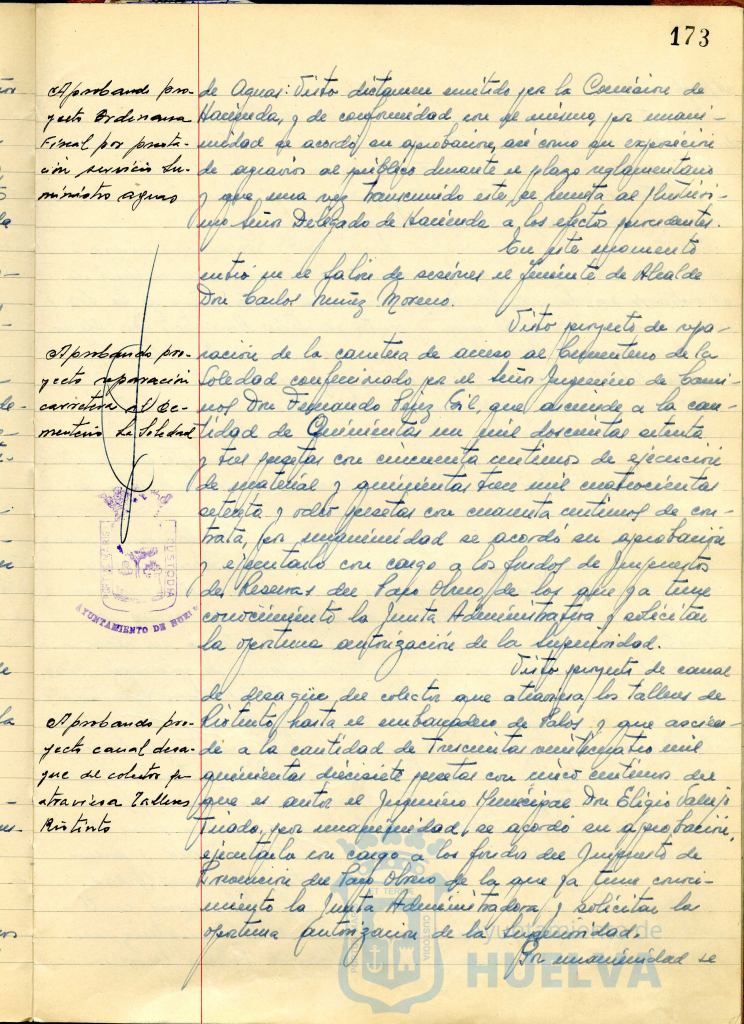 173
Aprobando pro-
yecto Ordenanza
Fiscal por presta-
ción servicio Su-
ministro aguas
de Aguas: Visto dictamen emitido por la Comisión de
Hacienda, y de conformidad con el mismo, por unani-
midad se acordó su aprobación, así como su exposición
de agravios al público durante el plazo reglamentario
y que una vez transcurrido este, se remita al Ilustrísi-
mo Señor Delegado de Hacienda a los efectos procedentes.
En este momento
entró en el Salón de sesiones el Teniente de Alcalde
Don Carlos Nuñez Moreno.
Aprobando pro-
yecto reparación
carretera al Ce-
menterio La Soledad
Visto proyecto de repa-
ración de la carretera de acceso al Cementerio de la
Soledad confeccionado por el Señor Ingeniero de Cami-
nos Don Fernando Pérez Gil, que asciende a la can-
tidad de Quinientas un mil doscientas setenta
y tres pesetas con cincuenta centimos de ejecución
de material y quinientas trece mil cuatrocientas
setenta y ocho pesetas con cuarenta centimos de con-
trata, por unanimidad se acordó su aprobación
y ejecutarlo con cargo a los fondos de Impuestos
de Reservas del Paro Obrero, de los que ya tiene
conocimiento la Junta Administrativa y solicitar
la oportuna autorización de la Superioridad.
CUSTODIA
AYUNTAMIENTO DE HUELVA
Aprobando pro-
yecto canal desa-
gue del colector que
atraviesa Talleres
Riotinto
Visto proyecto de canal
de desagüe del colector que atraviesa los talleres de
Riotinto, hasta el embarcadero de Palos y que ascien-
de a la cantidad de Trescientas veinticuatro mil
quinientas diecisiete pesetas con cinco centimos del
que es autor el Ingeniero Municipal Don Eligio Vallejo
Tirado, por unanimidad, se acordó su aprobación,
ejecutarlo con cargo a los fondos del Impuesto de
Prevención del Paro Obrero de la que ya tiene conoci-
miento la Junta Administradora y solicitar la
oportuna autorización de la Superioridad.
Por unanimidad se
Ayuntamiento de
HUELVA